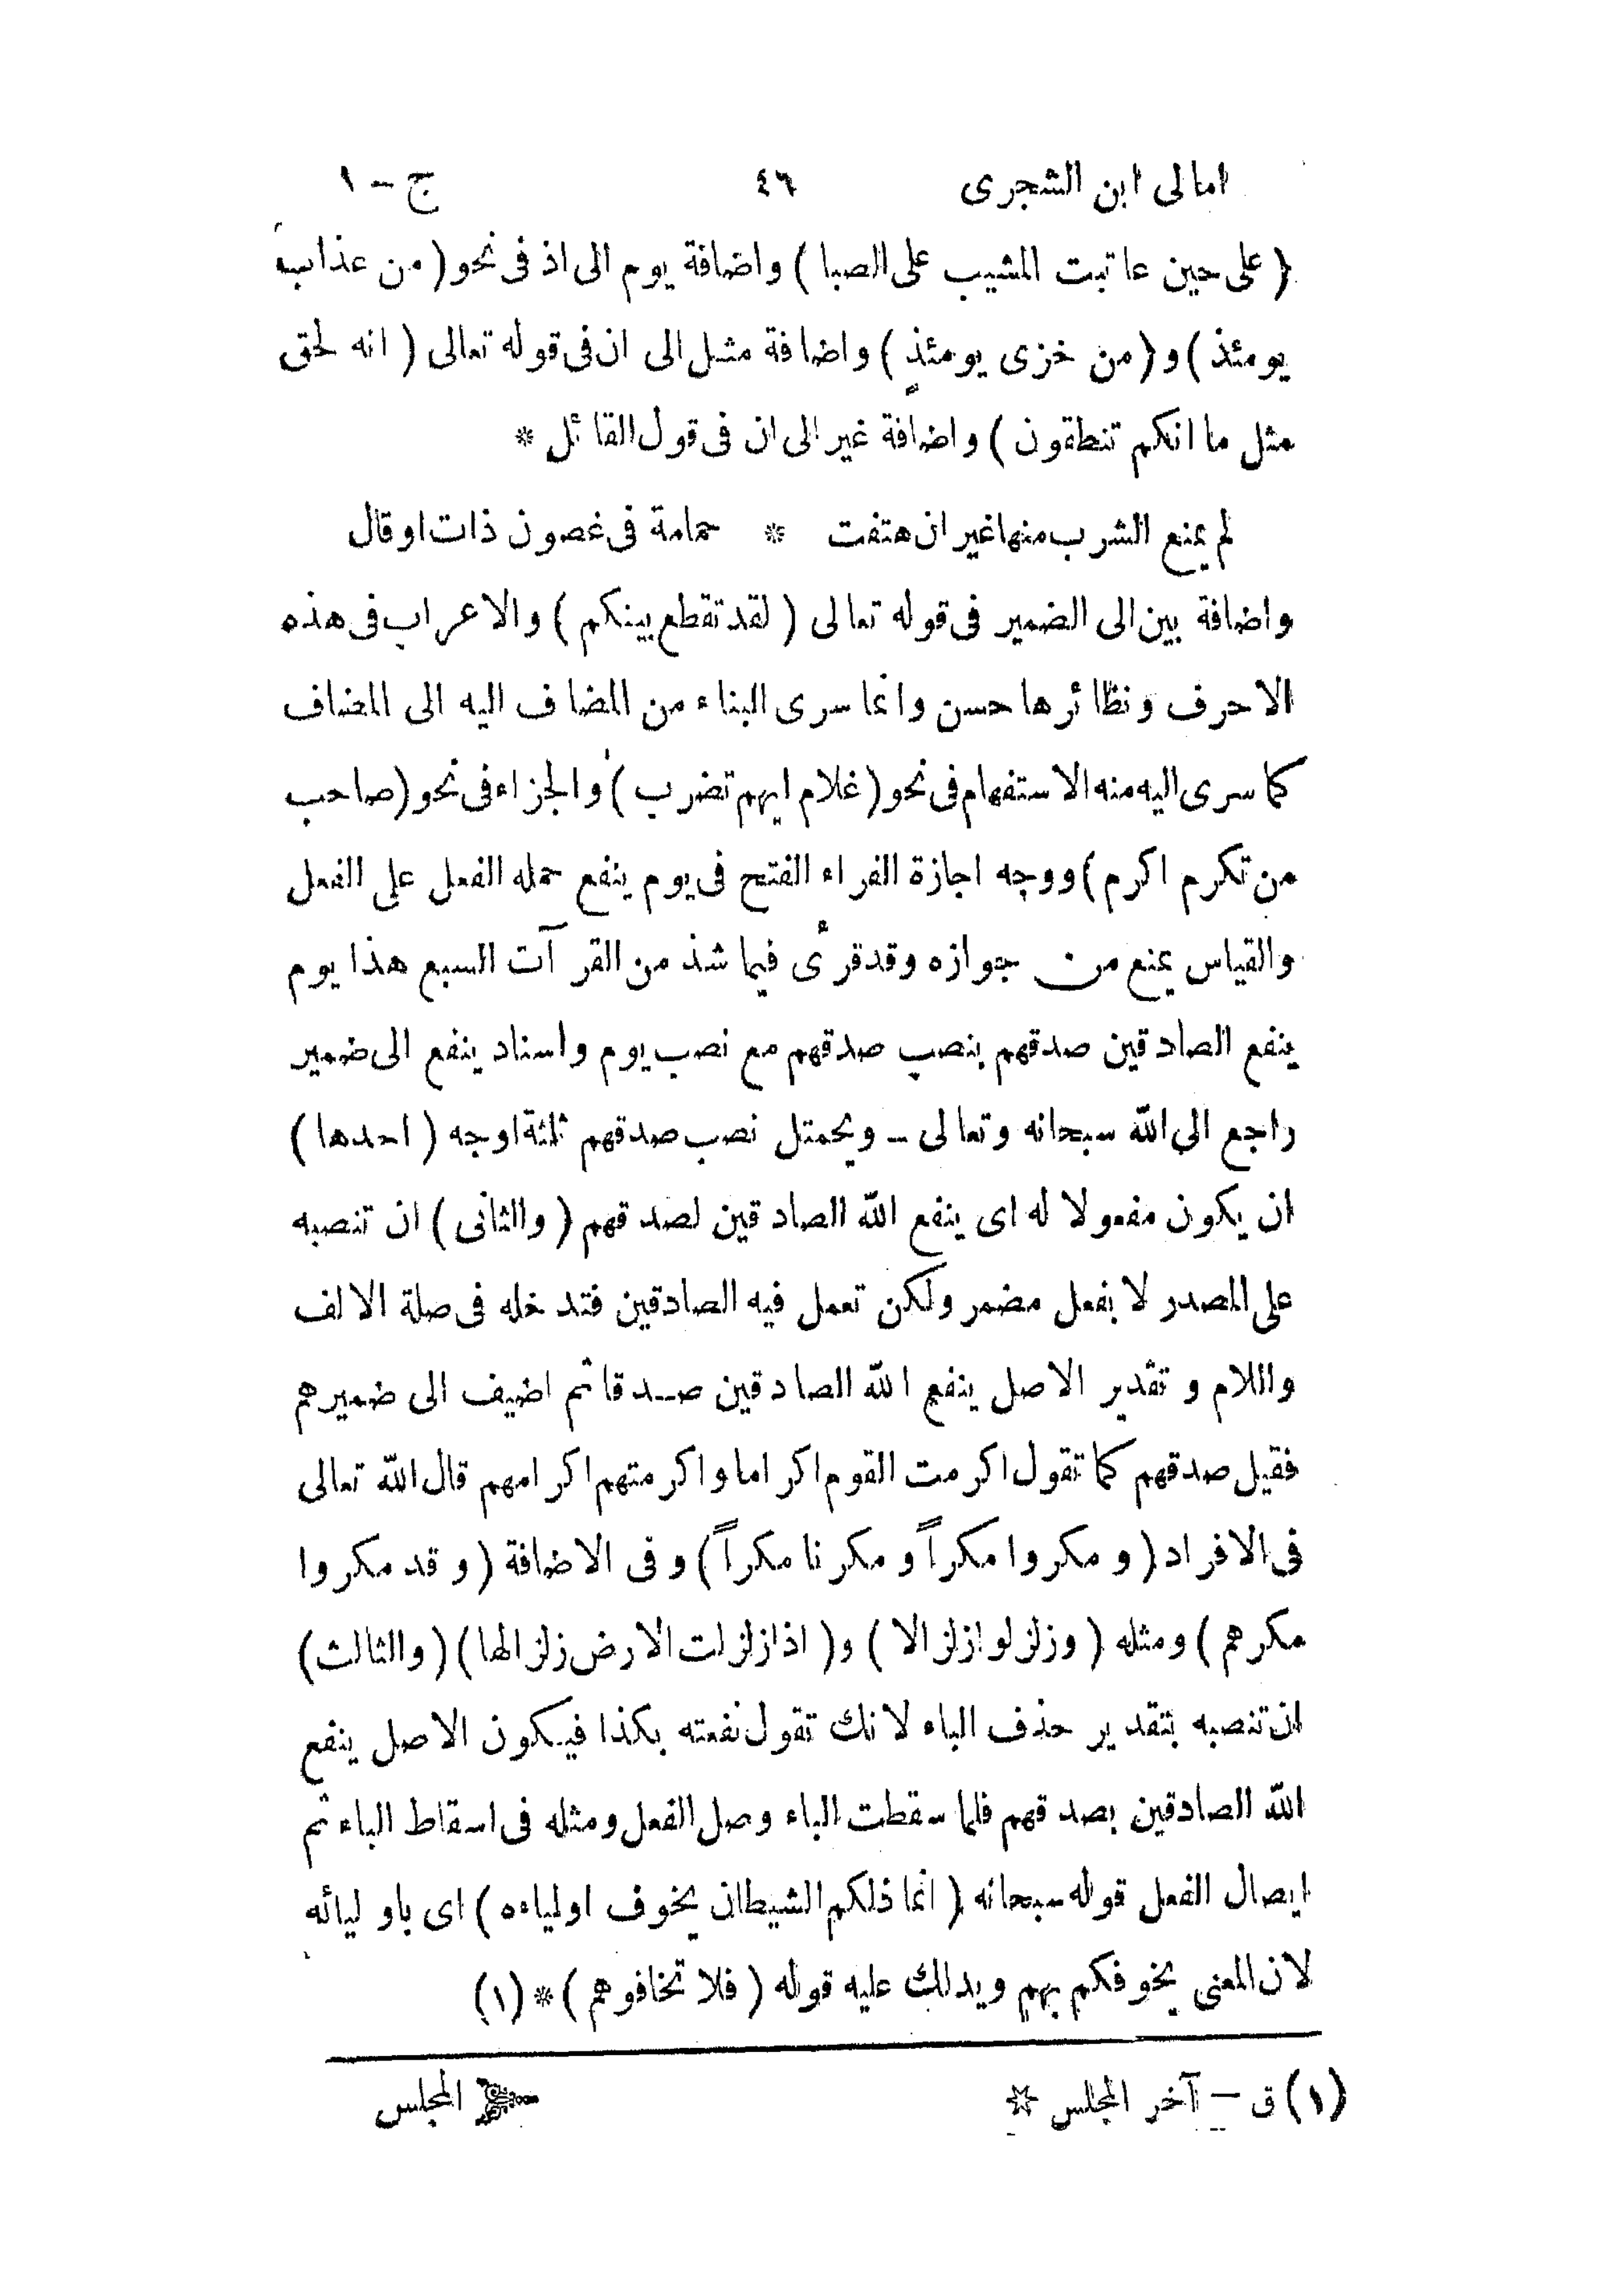 امالى ابن الشجرى ٤٦ ج – ١
( على حين عاتبت المشيب على الصبا ) واضافة يوم الى اذ فى نحو ( من عذاب
يومئذ ) و ( من خزى يومئذٍ ) واضافة مثل الى ان فى قوله تعالى ( انه لحق
مثل ما انكم تنطقون ) واضافة غير الى ان فى قول القائل *
لم يمنع الشرب منها غير ان هتفت * حمامة فى غصون ذات اوقال
واضافة بين الى الضمير فى قوله تعالى ( لقد تقطع بينكم ) والاعراب فى هذه
الاحرف ونظائرها حسن وانما سرى البناء من المضاف اليه الى المضاف
كما سرى اليه منه الاستفهام فى نحو ( غلام ايهم تضرب ) والجزاء فى نحو ( صاحب
من تكرم اكرم ) ووجه اجازة الفراء الفتح فى يوم ينفع حمله الفعل على الفعل
والقياس يمنع من جوازه وقد قرأى فيما شذ من القرآت السبع هذا يوم
ينفع الصادقين صدقهم بنصب صدقهم مع نصب يوم واسناد ينفع الى ضمير
راجع الى الله سبحانه وتعالى – ويحمتل نصب صدقهم ثلثة اوجه ( احدها )
ان يكون مفعولا له اى ينفع الله الصادقين لصدقهم ( والثانى ) ان تنصبه
على المصدر لا بفعل مضمر ولكن تعمل فيه الصادقين فتدخله فى صلة الالف
واللام و تقدير الاصل ينفع الله الصادقين صدقا ثم اضيف الى ضميرهم
فقيل صدقهم كما تقول اكرمت القوم اكراما واكرمتهم اكرامهم قال الله تعالى
فى الافراد ( و مكروا مكراً و مكرنا مكراً ) و فى الاضافة ( و قد مكروا
مكرهم ) ومثله ( وزلزلوا زلزالا ) و ( اذا زلزلت الارض زلزالها ) ( والثالث )
ان تنصبه بتقدير حذف الباء لانك تقول نفعته بكذا فيكون الاصل ينفع
الله الصادقين بصدقهم فلما سقطت الباء وصل الفعل ومثله فى اسقاط الباء ثم
ايصال الفعل قوله سبحانه ( انما ذلكم الشيطان يخوف اولياءه ) اى باوليائه
لان المعنى يخوفكم بهم ويدلك عليه قوله ( فلا تخافوهم ) * (١)
(١) ق – آخر المجلس ☆
المجلس